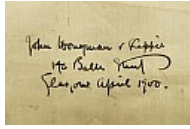 John Honeyman & Keppie
140 Bath Street
Glasgow April 1900.